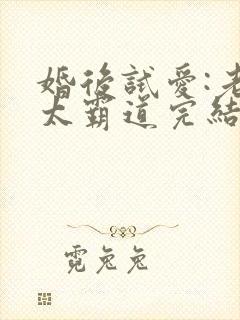 婚後試愛:老
太霸道完結
霓兔兔